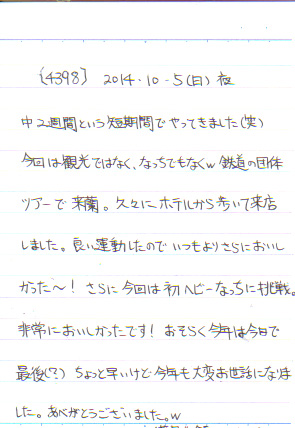 [4398] 2014・10・5(日) 夜
中2週間という短期間でやってきました(笑)
今回は観光ではなく、なっちでもなくw 鉄道の団体
ツアーで来蘭。久々にホテルから歩いて来店
しました。良い運動したのでいつもよりさらにおいし
かった〜! さらに今回は初ヘビーなっちに挑戦。
非常においしかったです! おそらく今年は今日で
最後(?) ちょっと早いけど今年も大変お世話になりま
した。ありがとうございました。w